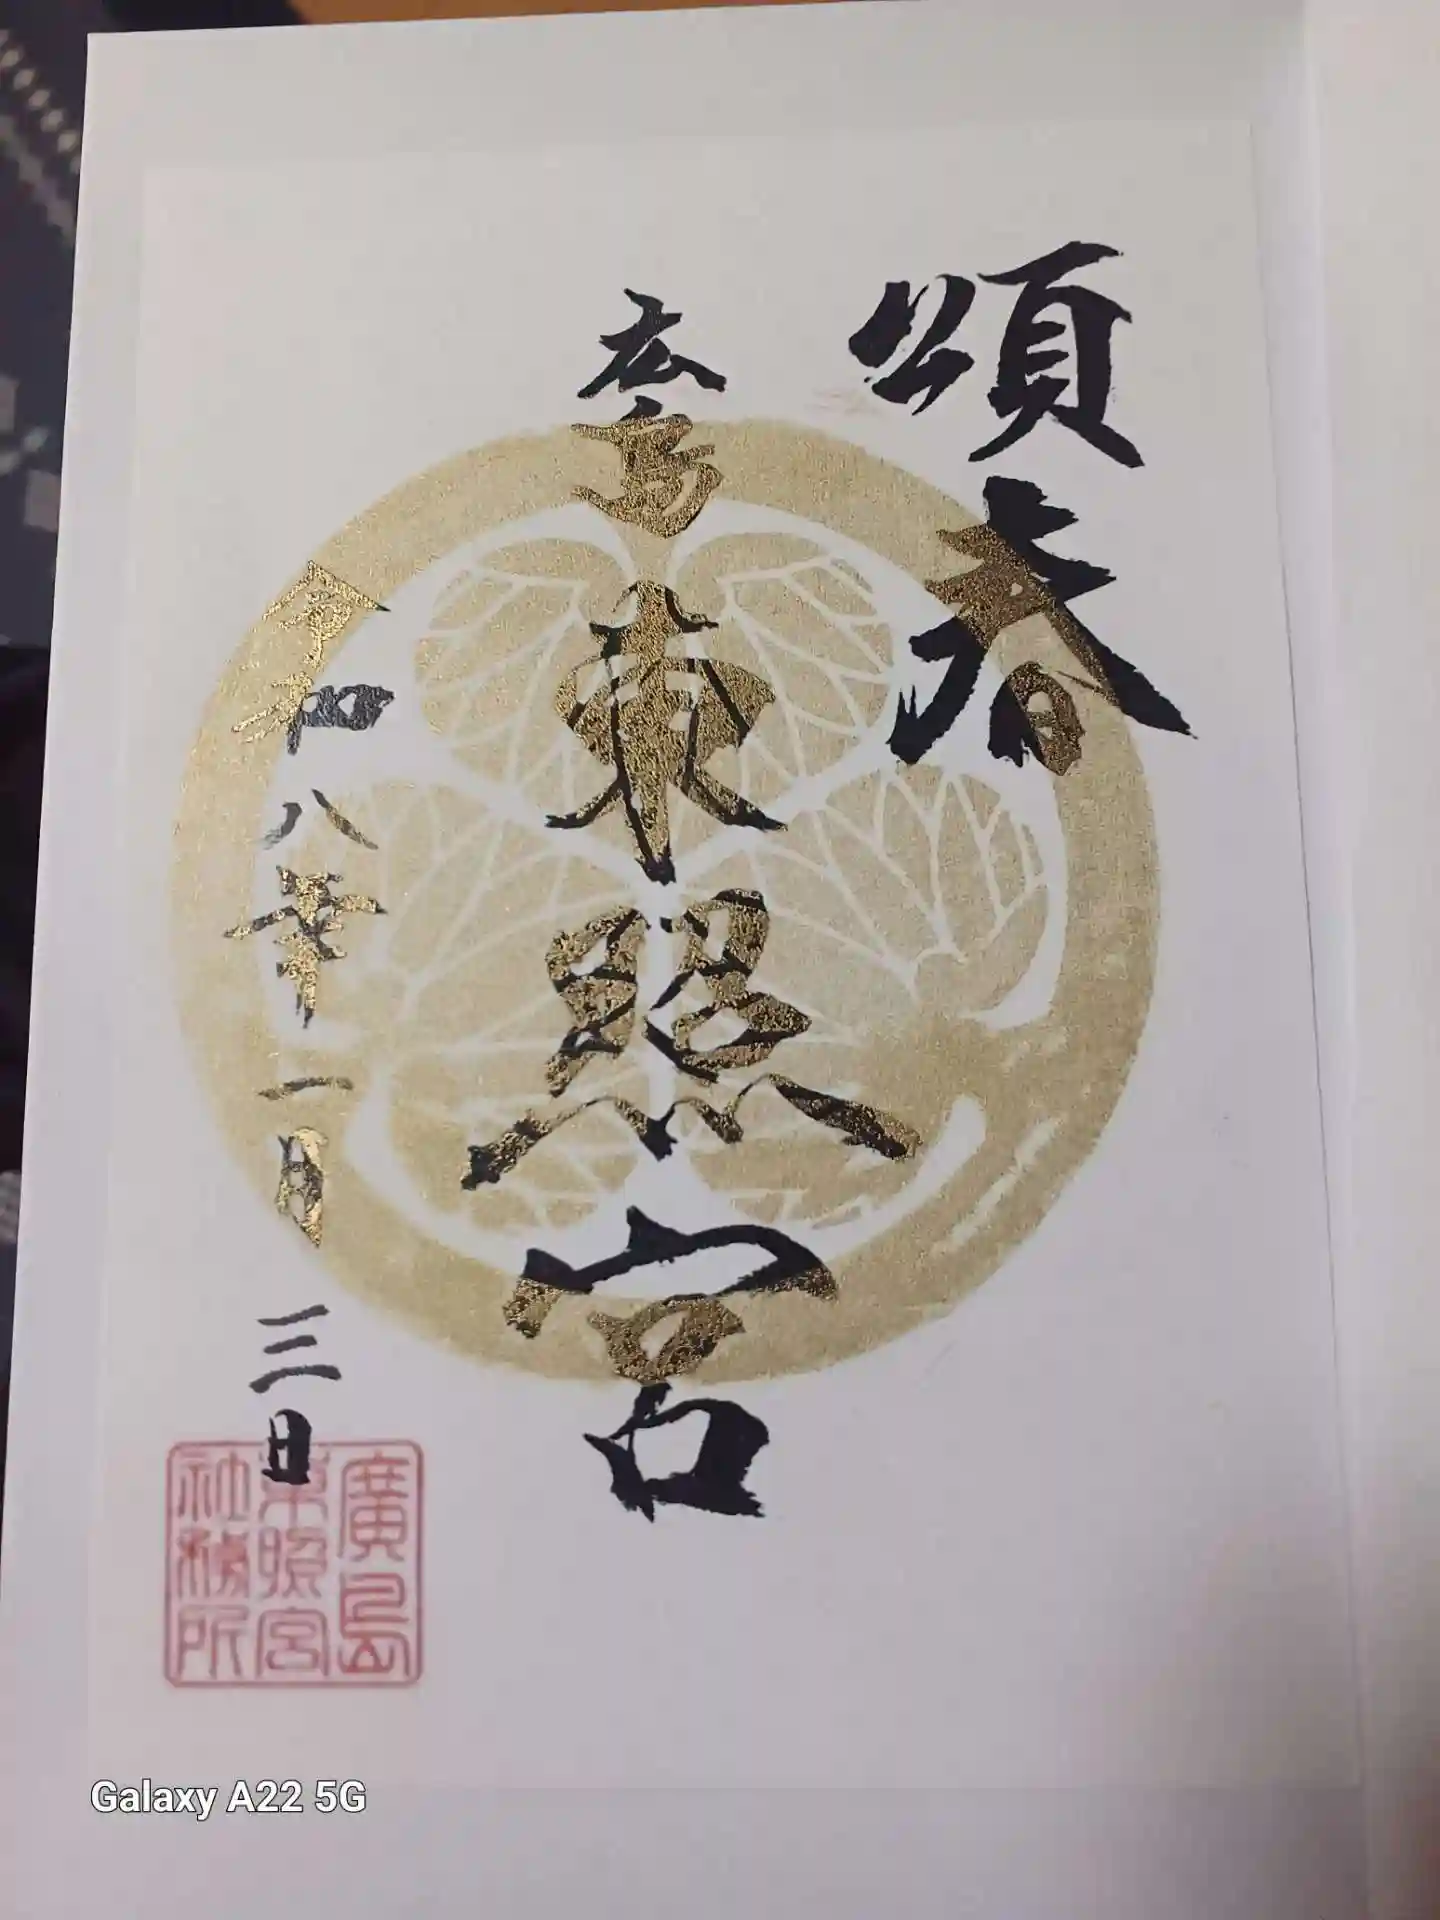 頌春
広島東照宮
令和八年一月三日
廣島
東照宮
社務所
Galaxy A22 5G